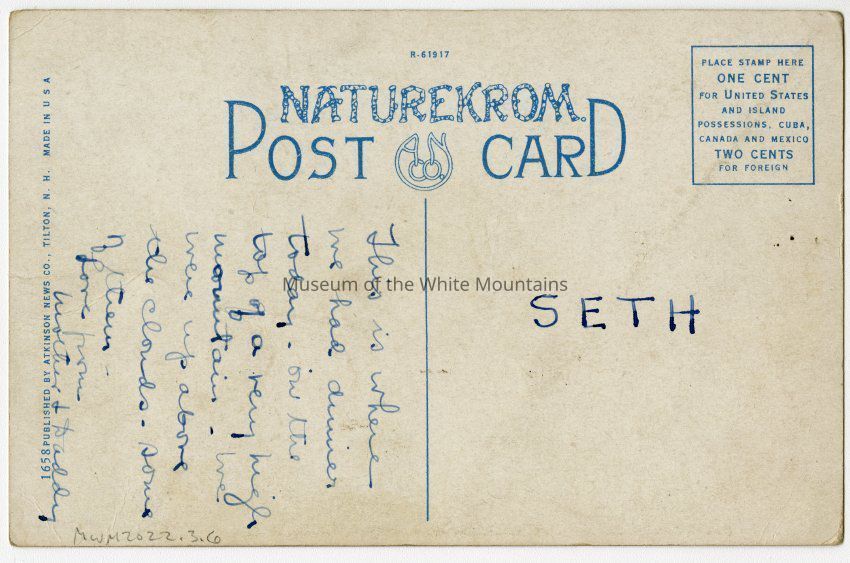 R-61917
NATUREKROM.
POST CARD
A N Co.
PLACE STAMP HERE
ONE CENT
FOR UNITED STATES
AND ISLAND
POSSESSIONS, CUBA,
CANADA AND MEXICO
TWO CENTS
FOR FOREIGN
1658 PUBLISHED BY ATKINSON NEWS CO., TILTON, N. H. MADE IN U S A
This is where
we had dinner
today. on the
top of a very high
mountain. We
were up above
the clouds. some
of them -
Love from
Mother & Daddy
SETH
Museum of the White Mountains
MWM2022.3.6